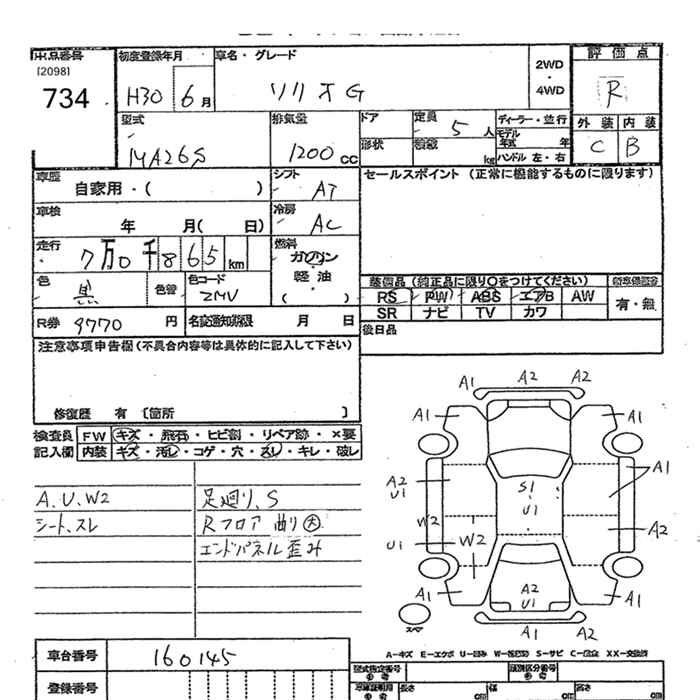 出品番号 初度登録年月 車名・グレード 2WD ・ 4WD 評価点
[2098]
734 H30 6月 ソリオG R
型式 排気量 ドア 定員 5人 ディーラー・並行 外装 内装
MA26S 1200cc 形状 積載 kg モデル年式 年 C B
ハンドル 左・右
車歴 自家用・( ) シフト AT セールスポイント (正常に機能するものに限ります)
車検 年 月( 日) 冷房 AC
走行 7万0千865km 燃料 ガソリン
軽油
( )
色 黒 色替 色コード ZMV
装備品(純正品に限り○をつけてください)
RS PW ABS エアB AW 有・無
SR ナビ TV カワ
R券 9770円 名変通知期限 月 日 後日品
注意事項申告欄(不具合内容等は具体的に記入して下さい)
修復歴 有 〔箇所 〕
検査員 FW キズ・飛石・ヒビ割・リペア跡・×要
記入欄 内装 キズ・汚レ・コゲ・穴・スレ・キレ・破レ
A.U.W2 足廻り、S
シート、スレ Rフロア曲り大
エンドパネル歪み
A1 A2 A2
A1 A1
A2 U1 S1 U1 A1
W2 W2 A2
U1
A2 U1
A1 A1
A1 A2
スペア
A-キズ E-エクボ U-凹み W-補修跡 S-サビ C-腐食 XX-交換済
車台番号 160145
登録番号
型式指定番号 類別区分番号
長さ cm 幅 cm 高さ cm